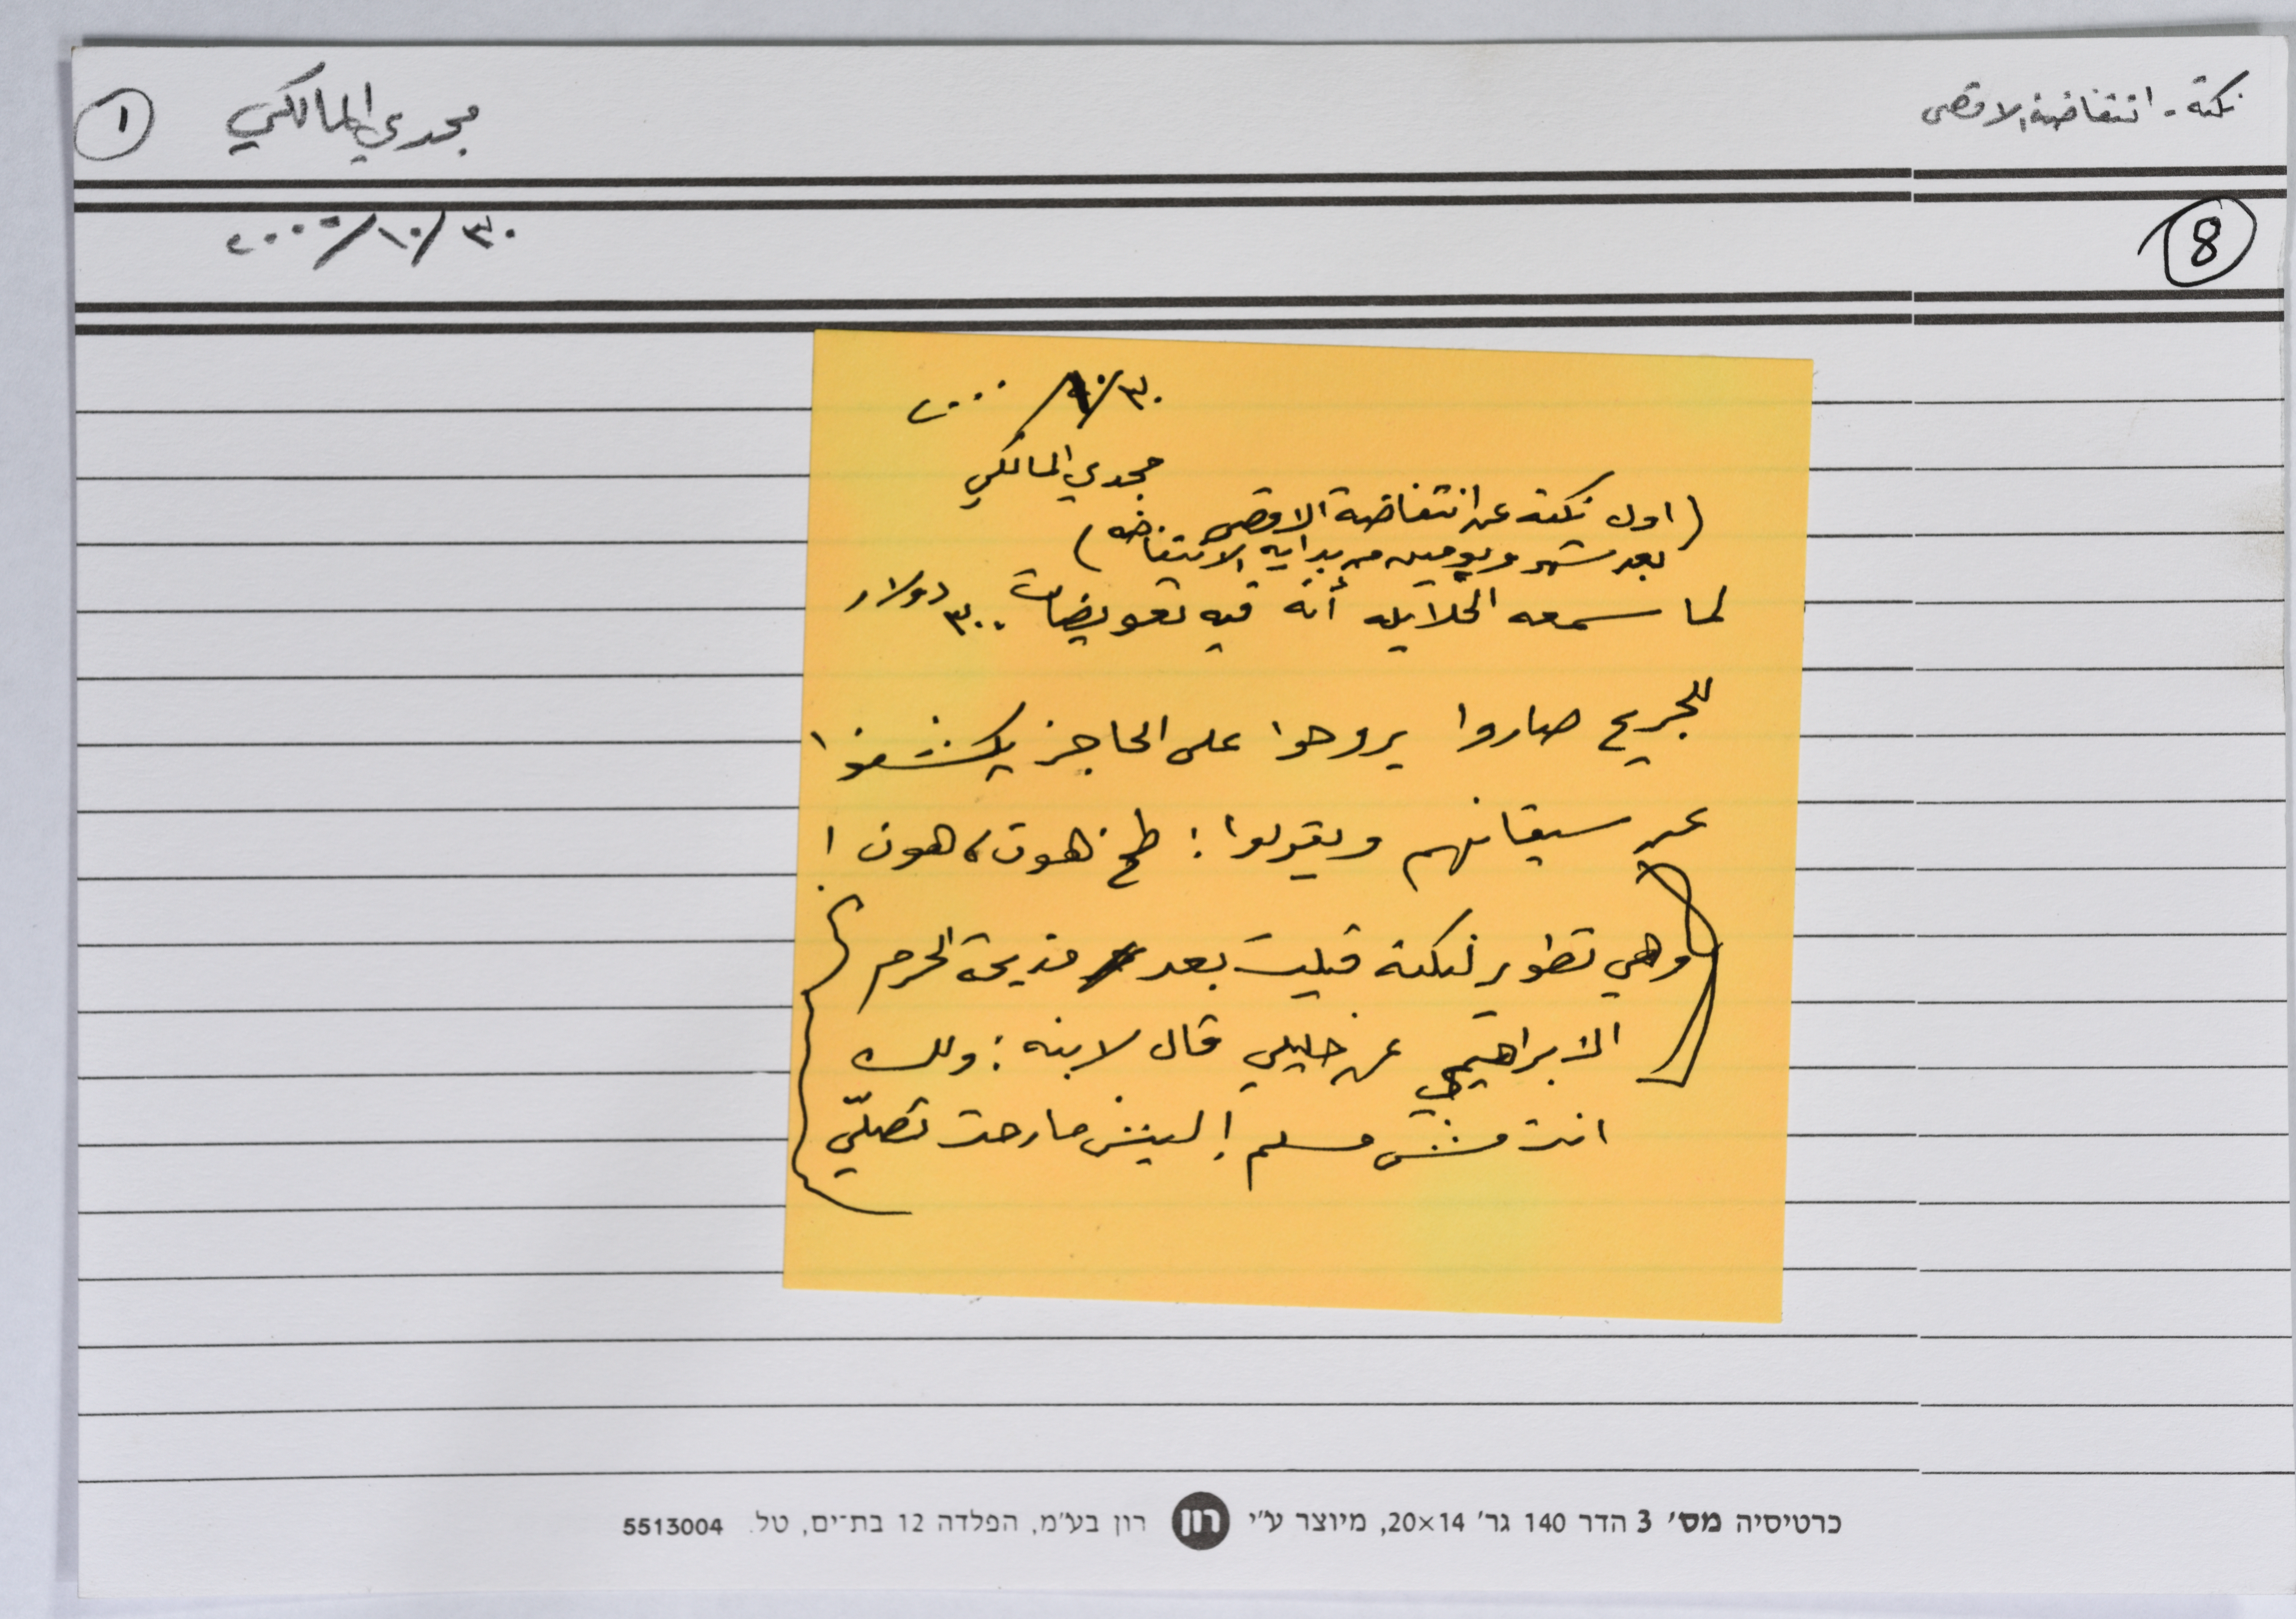 نكتة - انتفاضة الاقصى
مجدي المالكي
١
٣٠/١٠/٢٠٠٠
8
٣٠/١٠/٢٠٠٠
مجدي المالكي
(اول نكتة عن انتفاضة الاقصى
بعد شهر ويومين من بداية الانتفاضة)
لما سمعه الخلايله أنه فيه تعويضات ٣٠٠ دولار
للجريح صاروا يروحوا على الحاجز يكشفوا
عن سيقانهم ويقولوا: طخ هون، هون!
(وهي تطوير لنكتة قيلت بعد مذبحة الحرم
الابراهيمي عن خليلي قال لابنه: ولك
انت مش مسلم! ليش ما رحت تصلّي)
כרטיסיה מס' 3 הדר 140 גר' 20×14, מיוצר ע"י רון רון בע"מ, הפלדה 12 בת־ים, טל. 5513004